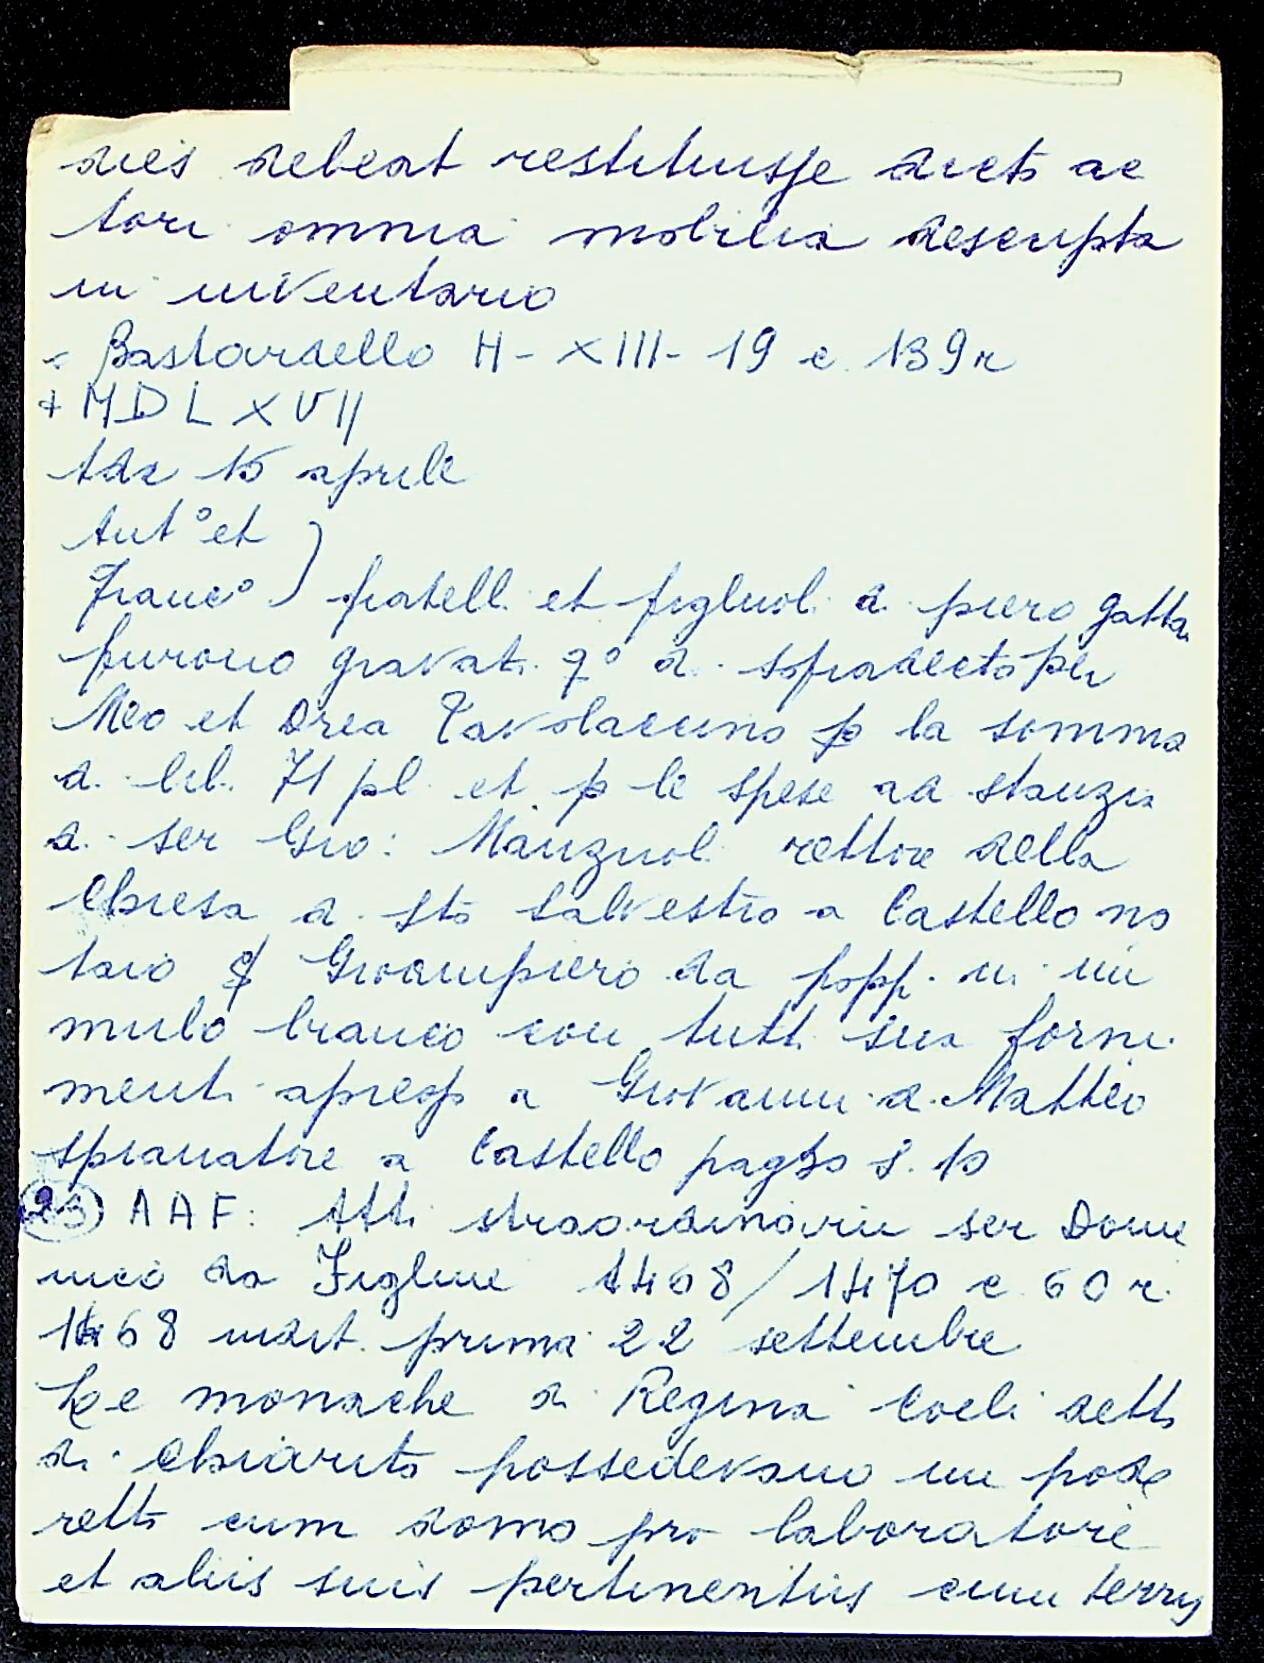 dies debeat restituisse dicto ac
tori omnia mobilia descripta
in inventario
= Bastardello H - XIII - 19 c. 139r
+ MDLXVII
Adi 15 aprile
Ant° et
Franc° ) fratelli et figliuoli di piero gatta
furono gravati q° di sopradecto per
Meo et Drea Tavolaccino p la somma
di lib. 71 pl. et p le spese ad stanzia
di ser Gio: Manzuoli rettore della
Chiesa di sto Salvestro a Castello no
taio S Gioampiero da poppi in un
mulo bianco con tutti sua forni
menti apresso a Giovanni di Matteo
spianatore a Castello pagto s. 10
23) AAF: Atti straordinarii ser Dome
nico da Figline 1468/1470 c 60 r.
1468 indit. prima 22 settembre
Le monache di Regina Coeli detto
di Chiarito possedevano un pode
retto cum domo pro laboratore
et aliis suis pertinentiis cum terris